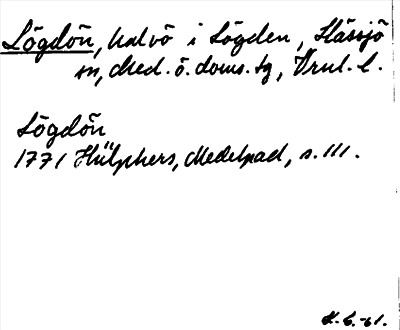 Lögdön, halvö i Lögden, Hässjö
sn, Med. ö. doms. tg, Vrnl. l.
Lögdön
1771 Hülphers, Medelpad, s. 111.